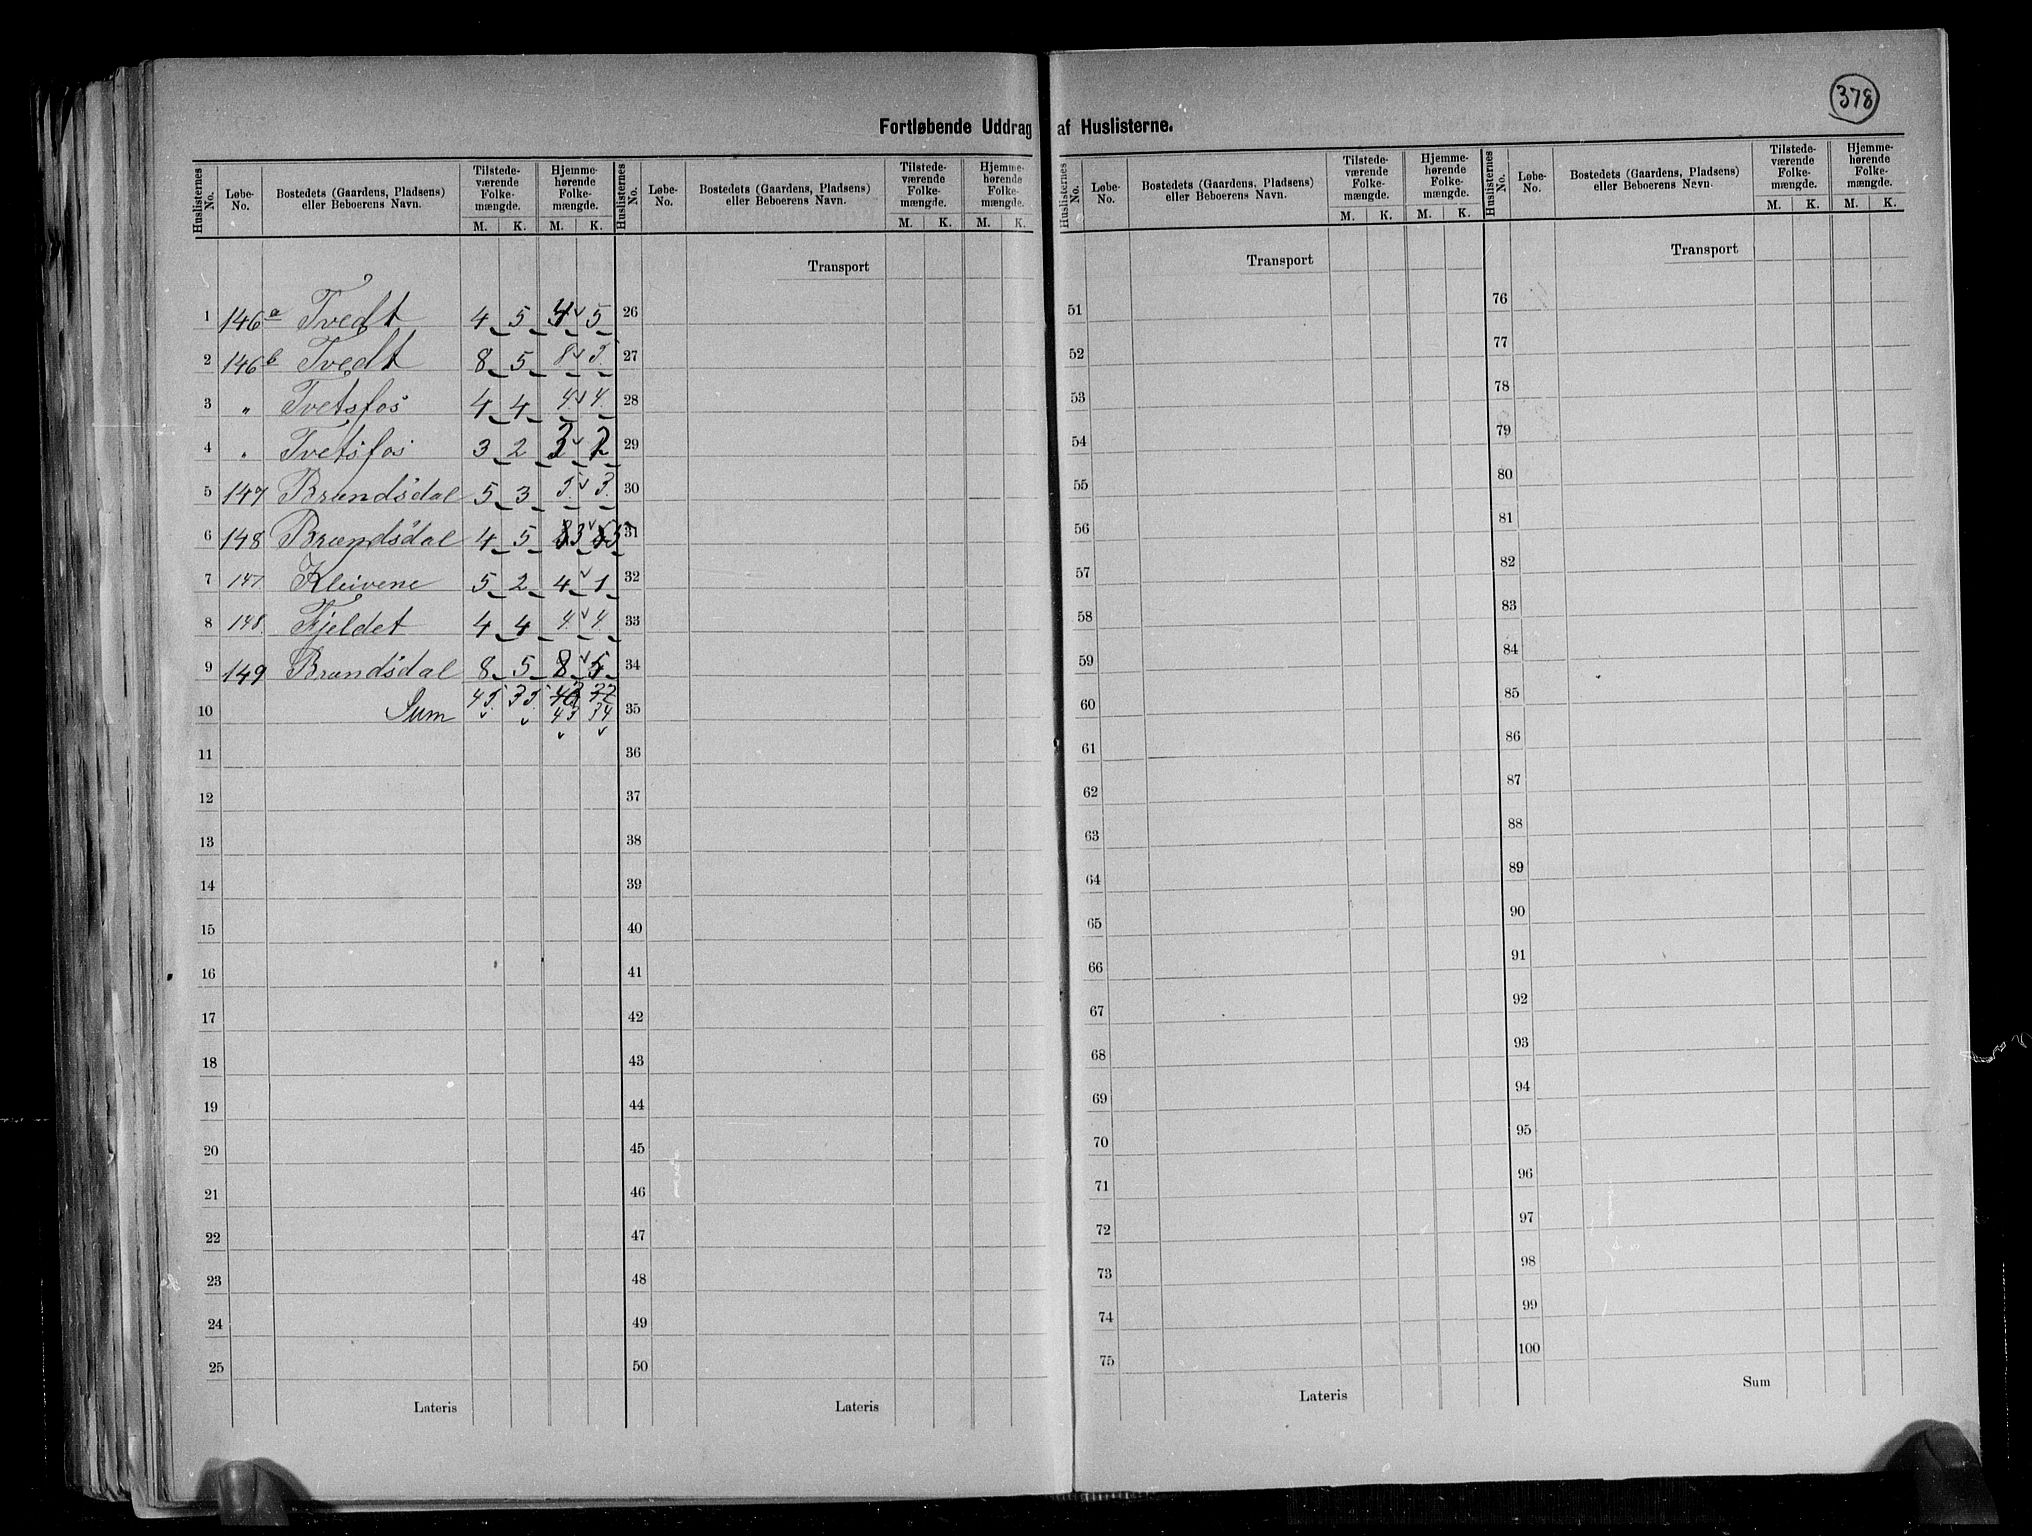 378
Fortløbende Uddrag af Huslisterne.
Huslisternes No. Løbe-No. Bostedets (Gaardens, Pladsens) eller Beboerens Navn. Tilstedeværende Folkemængde. M. K. Hjemmehørende Folkemængde. M. K.
Huslisternes No. Løbe-No. Bostedets (Gaardens, Pladsens) eller Beboerens Navn. Tilstedeværende Folkemængde. M. K. Hjemmehørende Folkemængde. M. K.
Huslisternes No. Løbe-No. Bostedets (Gaardens, Pladsens) eller Beboerens Navn. Tilstedeværende Folkemængde. M. K. Hjemmehørende Folkemængde. M. K.
Huslisternes No. Løbe-No. Bostedets (Gaardens, Pladsens) eller Beboerens Navn. Tilstedeværende Folkemængde. M. K. Hjemmehørende Folkemængde. M. K.
1 146a Tvedt 4 5 4 5
2 146b Tvedt 8 5 8 5
3 " Tvetsfos 4 4 4 4
4 " Tvetsfos 3 2 3
5 147 Brændsdal 5 3 5 3
6 148 Brændsdal 4 5 3 5
7 147 Kleivene 5 2 4 1
8 148 Fjeldet 4 4 4 4
9 149 Brændsdal 8 5 8 5
10 Sum 45 35 43 34
11
12
13
14
15
16
17
18
19
20
21
22
23
24
25
Lateris
Transport
26
27
28
29
30
31
32
33
34
35
36
37
38
39
40
41
42
43
44
45
46
47
48
49
50
Lateris
Transport
51
52
53
54
55
56
57
58
59
60
61
62
63
64
65
66
67
68
69
70
71
72
73
74
75
Lateris
Transport
76
77
78
79
80
81
82
83
84
85
86
87
88
89
90
91
92
93
94
95
96
97
98
99
100
Sum